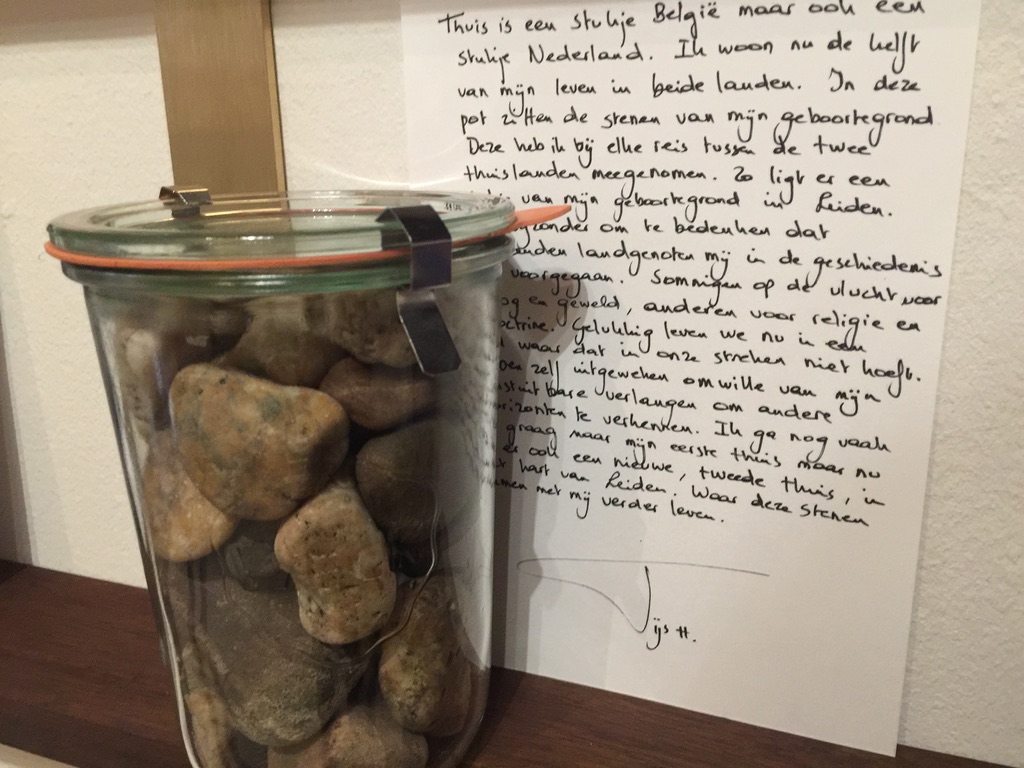 Thuis is een stukje België maar ook een
stukje Nederland. Ik woon nu de helft
van mijn leven in beide landen. In deze
pot zitten de stenen van mijn geboortegrond
Deze heb ik bij elke reis tussen de twee
thuislanden meegenomen. Zo ligt er een
van mijn geboortegrond in Leiden.
om te bedenken dat
landgenoten mij in de geschiedenis
voorgegaan. Sommigen op de vlucht voor
en geweld, anderen voor religie en
Gelukkig leven we nu in een
waar dat in onze streken niet hoeft.
zelf uitgeweken omwille van mijn
verlangen om andere
te verkennen. Ik ga nog vaak
graag naar mijn eerste thuis maar nu
er ook een nieuwe, tweede thuis, in
hart van Leiden. Waar deze stenen
met mij verder leven.
Tijs H.